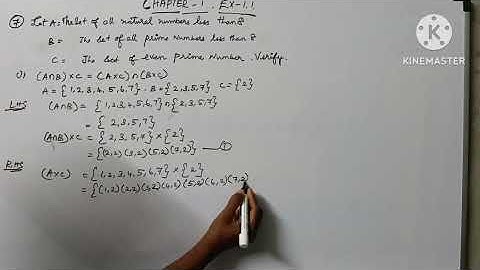 CHAPTER-1 EX-1.1
⑦. Let A=The set of all natural numbers less than 8
B = The set of all prime numbers less than 8
C = The set of even prime Number. Verify.
i) (A∩B)×C = (A×C)∩(B×C)
A = {1,2,3,4,5,6,7} B = {2,3,5,7} C={2}
LHS (A∩B) = {1,2,3,4,5,6,7}∩{2,3,5,7}
= {2,3,5,7}
(A∩B)×C = {2,3,5,7} × {2}
= {(2,2)(3,2)(5,2)(7,2)} —①
RHS (A×C) = {1,2,3,4,5,6,7} × {2}
= {(1,2)(2,2)(3,2)(4,2)(5,2)(6,2)(7,2)
KINEMASTER